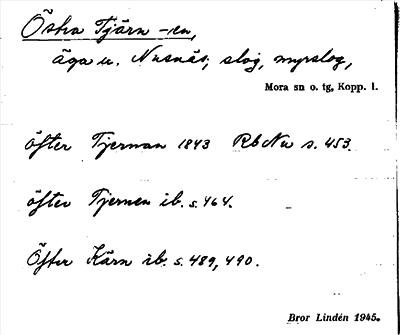 Östra Tjärn -en,
äga u. Nusnäs, slog, myrslog,
Mora sn o. tg, Kopp. l.
öfter Tjernan 1843 RbNu s. 453.
öfter Tjernen ib. s. 464.
Öfter Kärn ib. s. 489, 490.
Bror Lindén 1945.